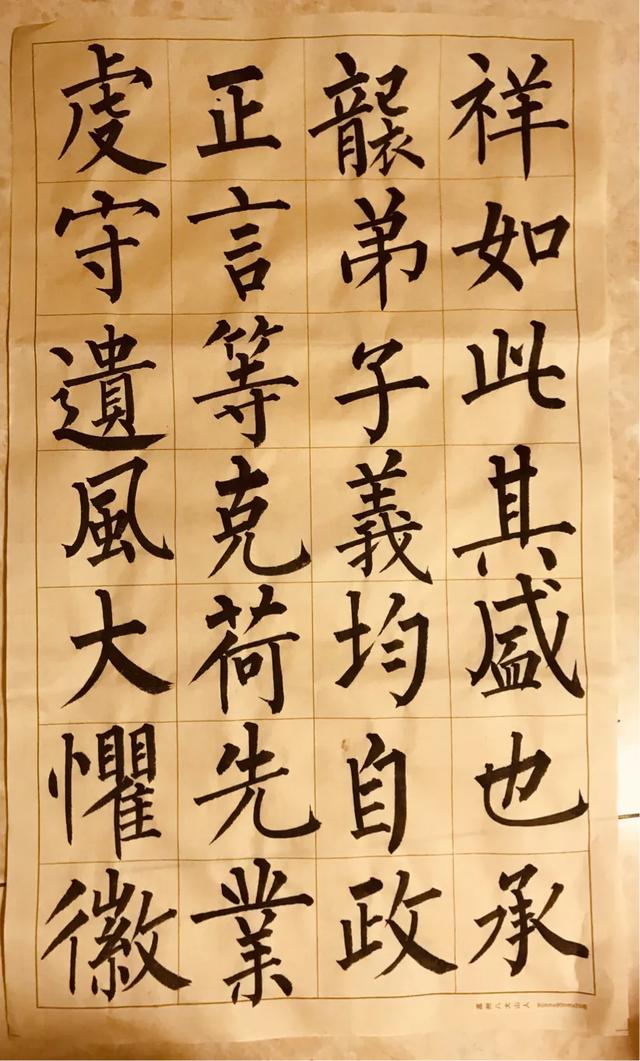 祥如此其盛也承
襲弟子義均自政
正言等克荷先業
虔守遺風大懼徽